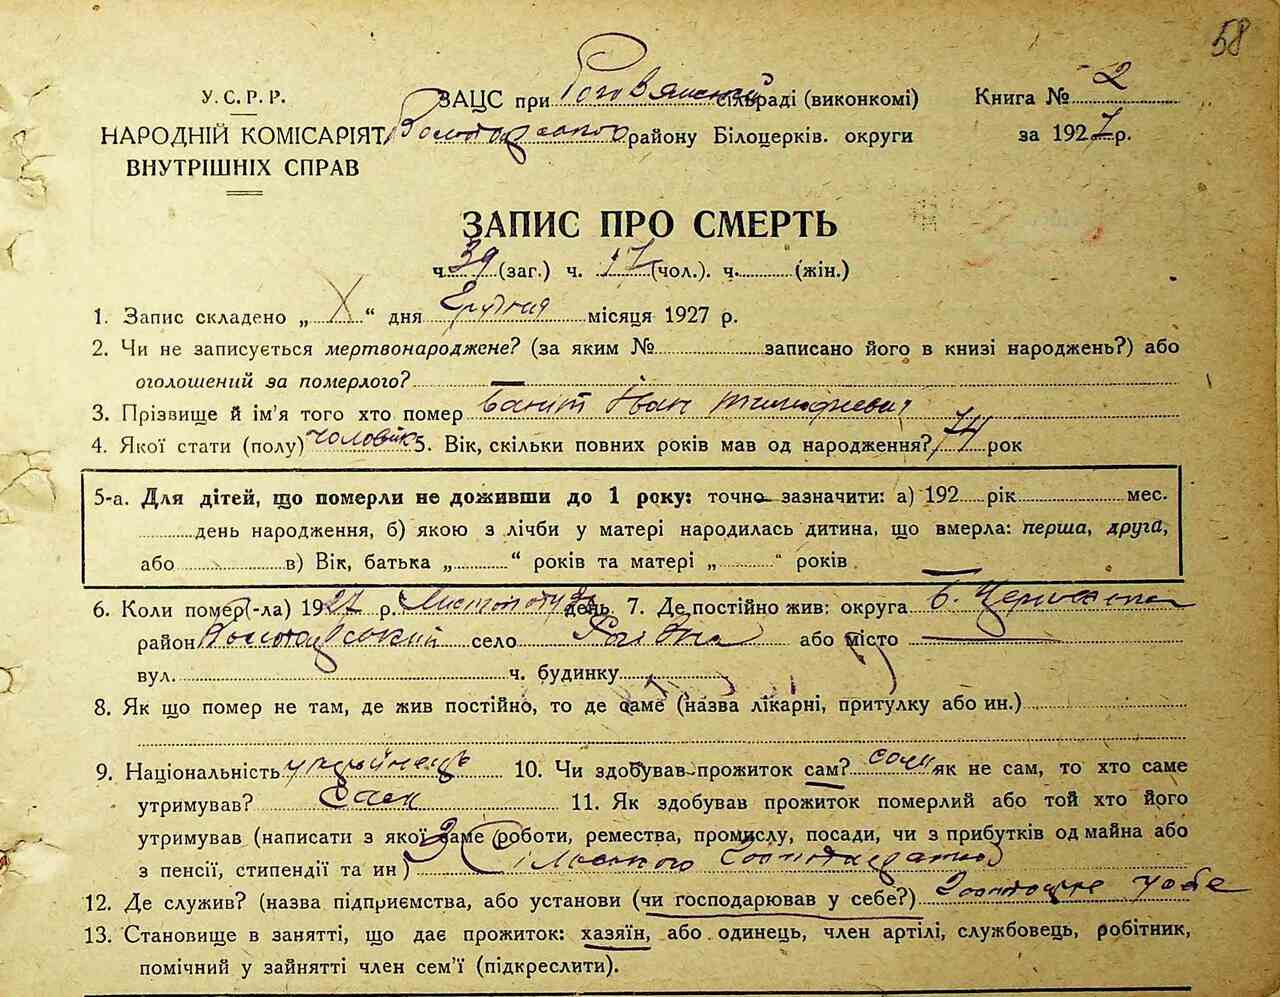 58
У. С. Р. Р.
НАРОДНІЙ КОМІСАРІЯТ
ВНУТРІШНІХ СПРАВ
ЗАЦС при Рогозянській сільраді (виконкомі)
Володарського району Білоцерків. округи
Книга № 2
за 1927 р.
ЗАПИС ПРО СМЕРТЬ
ч. 39 (заг.) ч. 17 (чол.). ч. (жін.)
1. Запис складено „ X “ дня Грудня місяця 1927 р.
2. Чи не записується мертвонароджене? (за яким № записано його в книзі народжень?) або
оголошений за померлого? —
3. Прізвище й ім'я того хто помер Іван
4. Якої стати (полу) чоловік 5. Вік, скільки повних років мав од народження? 74 рок
5-а. Для дітей, що померли не доживши до 1 року: точно зазначити: а) 192 рік мес.
день народження, б) якою з лічби у матері народилась дитина, що вмерла: перша, друга,
або в) Вік, батька „ “ років та матері „ “ років
6. Коли помер(-ла) 1927 р. Листопаду день 7. Де постійно жив: округа Б. Церковська
район Володарський село або місто —
вул. ч. будинку
8. Як що помер не там, де жив постійно, то де саме (назва лікарні, притулку або ин.)
9. Національність українець 10. Чи здобував прожиток сам? сам як не сам, то хто саме
утримував? Сам 11. Як здобував прожиток померлий або той хто його
утримував (написати з якої саме роботи, ремества, промислу, посади, чи з прибутків од майна або
з пенсії, стипендії та ин) З сільського господарства
12. Де служив? (назва підприємства, або установи (чи господарював у себе?) у себе
13. Становище в занятті, що дає прожиток: хазяїн, або одинець, член артілі, службовець, робітник,
помічний у зайнятті член сем'ї (підкреслити).